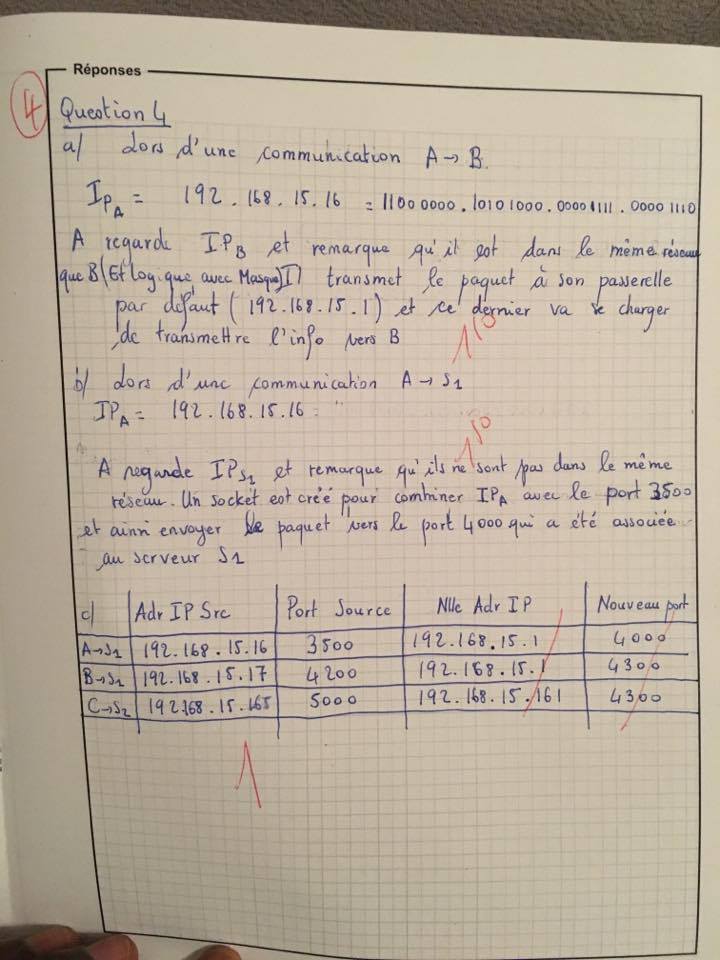 Réponses
4
Question 4
a/ Lors d'une communication A → B.
IP_A = 192.168.15.16 = 11000000.10101000.00001111.00001110
A regarde IP_B et remarque qu'il est dans le même réseau
que B (Et logique avec Masque) Il transmet le paquet à son passerelle
par défaut (192.168.15.1) et ce dernier va se charger
de transmettre l'info vers B
b/ Lors d'une communication A → S1
IP_A = 192.168.15.16 = "
A regarde IP_S1 et remarque qu'ils ne sont pas dans le même
réseau. Un socket est créé pour combiner IP_A avec le port 3500
et ainsi envoyer le paquet vers le port 4000 qui a été associée
au serveur S1
c/ Adr IP Src Port Source Nlle Adr IP Nouveau port
A→S1 192.168.15.16 3500 192.168.15.1 4000
B→S1 192.168.15.17 4200 192.168.15.1 4300
C→S2 192.168.15.165 5000 192.168.15.161 4300
1